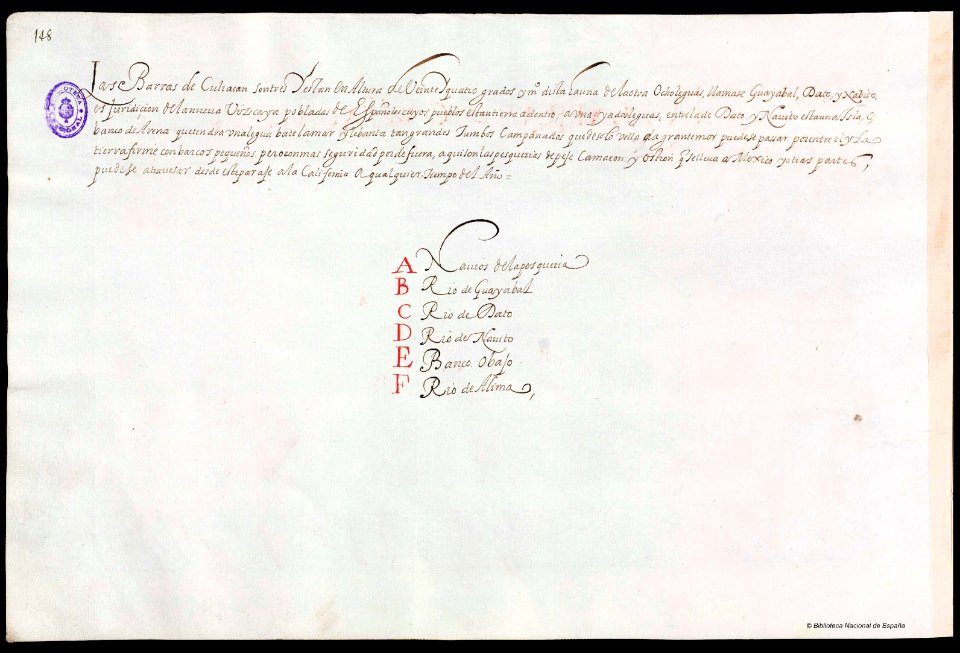 148
Las Barras de Culiacan son tres Y estan En Altura de Veinte Y quatro grados y mº dista la una de la otra Ocho leguas, llamase Guayabal, Dato, y Nauito,
es Juridicion de la nueua Vizcaya poblada de Españoles cuyos pueblos estan tierra adentro, a una y a dos leguas, entre la de Dato, y Nauito esta una Isla, O
banco de Arena que tendra una legua bate la mar y leuanta tan grandes Tumbos Campanados que de solo vello da gran temor puedese pasar por entre el y La
tierra firme con barcos pequeños pero con mas seguridad por de fuera, aqui son las pesquerias de pese Camaron, y Ostion q se lleua a Mexico y otras partes,
puedese atrauesar desde este paraje a la California A qualquier Tiempo del Año=
A Nauios de la pesqueria
B Rio de Guayabal
C Rio de Dato
D Rio de Nauito
E Banco O bajo
F Rio de Alima,
© Biblioteca Nacional de España